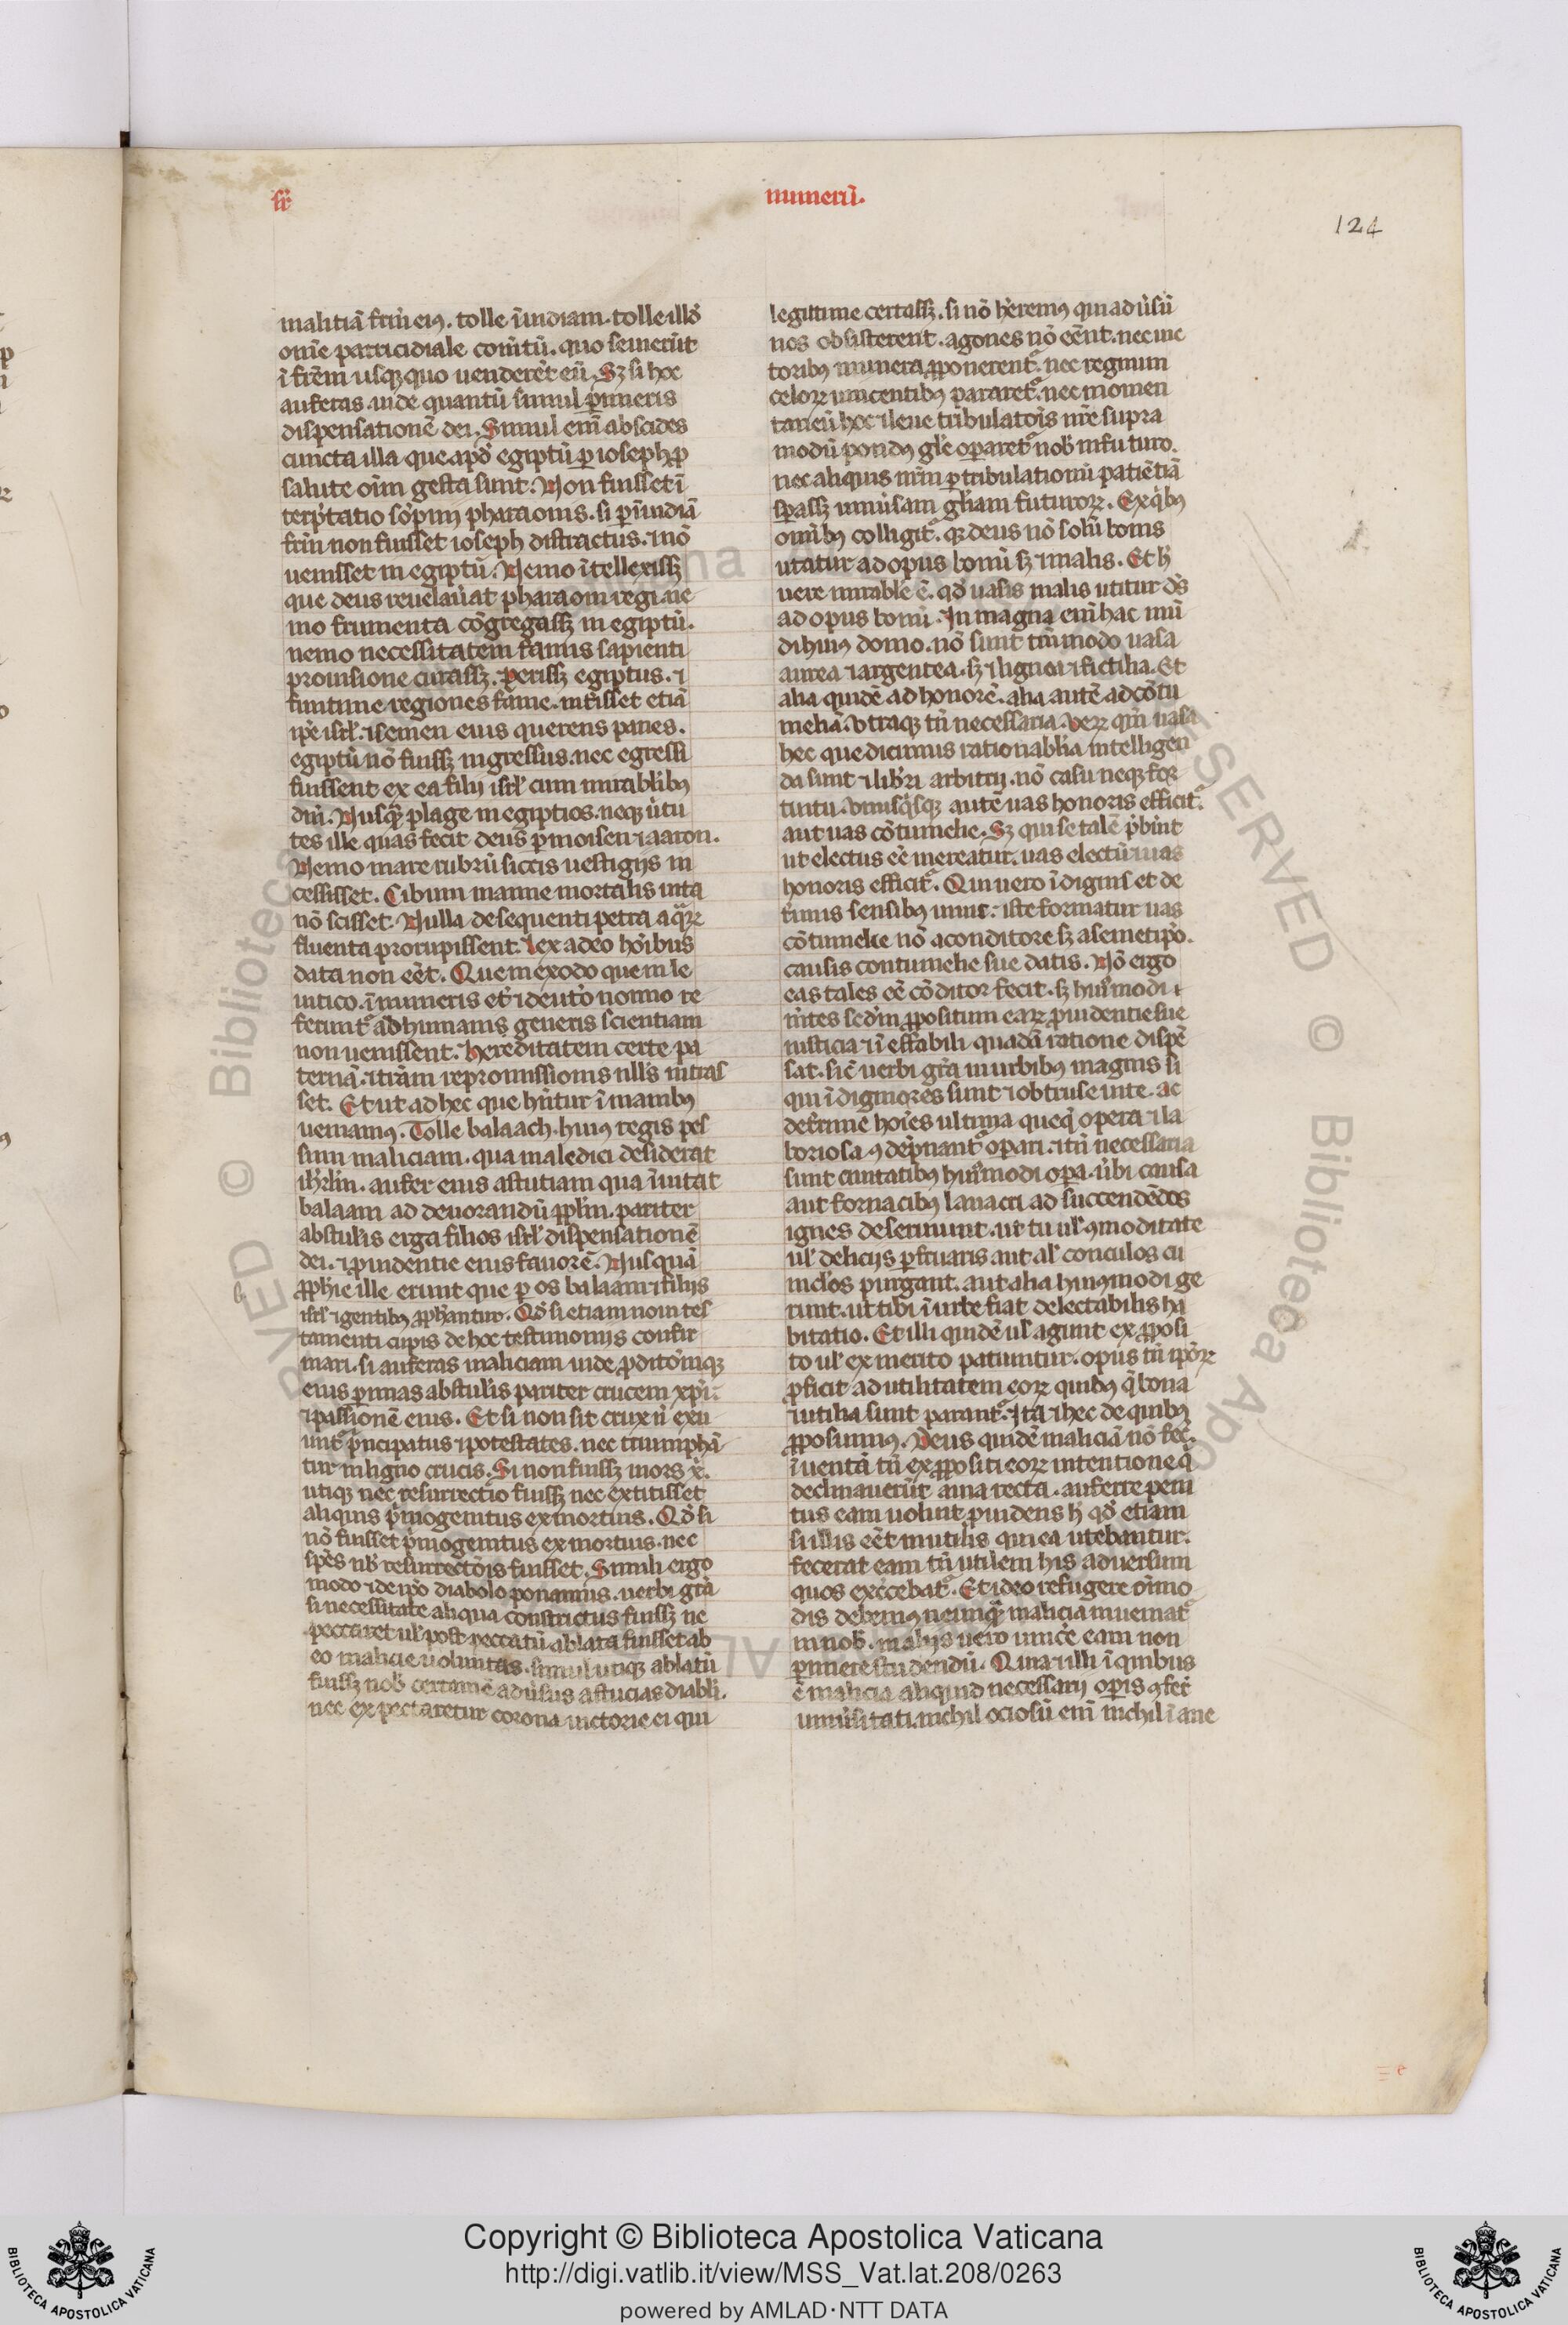 sr̄
numerū.
124
malitiā frm̄ eiꝰ. tolle īuidiam. tolle illd̓
om̄e parricidiale com̄tū. quo seuierūt
ī frēm usqꝫ quo uenderēt eū. Sꝫ si hoc
auferas uide quantū simul ꝑimeris
dispensationē dei. Simul em̄ abscides
cuncta illa que apd̓ egiptū ꝑ ioseph ꝓ
salute oīm gesta sunt. Non fuisset ī
terp̄tatio sōpnij pharaonis. si ꝑ īuidiā
frm̄ non fuisset ioseph distractus. ⁊ nō
uenisset in egiptū. Nemo ītellexissꝫ
que deus reuelauat̓ pharaoni regi. ne
mo frumenta cōgregassꝫ in egiptū.
nemo necessitatem famis sapienti
prouisione curassꝫ. perissꝫ egiptus. ⁊
finitime regiones fame. int̓isset etiā
ip̄e isrl̓. ⁊ semen eius querens panes.
egiptū nō fuissꝫ ingressus. nec egressi
fuissent ex ea filij isrl̓ cum mirabl̓ibꝰ
dn̄i. Nusq̄ꝫ plage in egiptios. neqꝫ ūtu
tes ille quas fecit deus ꝑ moisen ⁊ aaron.
Nemo mare rubrū siccis uestigijs in
cessisset. Cibum manne mortalis uita
nō scisset. Nulla de sequenti petra aq̄ꝝ
fluenta prorupissent. Lex a deo hōibus
data non eēt. Que in exodo que in le
uitico. ī numeris et ⁊ deut̓o nomio re
ferunt̓ ad humanis generis scientiam
non uenissent. Hereditatem certe pa
ternā. ⁊ tr̄am repromissionis nll̓s intras
set. Et ut ad hec que hn̄tur ī manibꝰ
ueniamꝰ. Tolle balaach. huiꝰ regis pes
simi maliciam. qua maledici desiderat
ihrl̓m. aufer eius astutiam qua īuitat
balaam ad deuorandū pp̄l̓m. pariter
abstul̓is erga filios isrl̓ dispensationē
dei. ⁊ ꝓuidentie eius fauorē. Nusquā
ꝓph̓ie ille erunt que ꝑ os balaam ⁊ filijs
isrl̓ ⁊ gentibꝰ ꝓph̓antur. Qd̓ si etiam noui tes
tamenti cupis de hoc testimonijs confir
mari. si auferas maliciam iude ꝓdito̓mqꝫ
eius ꝑimas abstul̓is pariter crucem xp̄i.
⁊ passionē eius. Et si non sit crux n̄ exu
unt̓ p̓ncipatus ⁊ potestates. nec triumphā
tur in ligno crucis. Si non fuissꝫ mors x̄.
utiqꝫ nec resurrectio fuissꝫ nec extitisset
aliquis p̓mogenitus ex mortuis. Qd̓ si
nō fuisset p̓mogenitus ex mortuis. nec
spēs nb̓ resurrectōis fuisset. Simili ergo
modo ⁊ de ip̄o diabolo ponamus. uerbi grā
si necessitate aliqua constrictus fuissꝫ ne
peccaret ul̓ post peccatū ablata fuisset ab
eo malicie uoluntas. simul utiqꝫ ablatū
fuissꝫ nob̓ certamē adūsus astucias diabl̓i.
nec expectaretur corona uictorie ei qui
legittime certassꝫ. si nō h̓eremꝰ qui adūsū
nos obsisterent. agones nō eēnt. nec uic
toribꝰ munera ꝓponerent̓. nec regnum
celoꝝ uincentibꝰ pararet̓. nec momen
taneū hoc ⁊ leue tribulatōis nr̄e supra
modū pondꝰ gl̓e operaret̓ nob̓ in futuro.
nec aliquis nr̄m ꝑ tribulationū patiētiā
sꝑassꝫ īmēsam gl̓iam futuroꝝ. Ex q̓bꝰ
om̄ibꝰ colligit̓. qꝫ deus nō solū bonis
utatur ad opus bonū sꝫ ⁊ malis. Et h̓
uere mirabl̓e ē. qd̓ uasis malis utitur ds̄
ad opus bonū. In magna em̄ hac mū
di huiꝰ domo. nō sunt tm̄modo uasa
aurea ⁊ argentea. sꝫ ⁊ lignea ⁊ fictilia. Et
alia quidē ad honorē. alia autē ad cōtu
meliā. Vtraqꝫ tn̄ necessaria. Veꝝ qm̄ uasa
hec que dicimus rationabl̓ia intelligen
da sunt ⁊ lib̓ri arbitrij. nō casu neqꝫ foꝛ
tuitu. Vnusq̓sqꝫ autē uas honoris efficit̓.
aut uas cōtumelie. Sꝫ qui se talē p̓bint
ut electus eē mereatur. uas electū ⁊ uas
honoris efficit̓. Qui uero īdignis et de
t̓mis sensibꝰ uiuit. iste formatur uas
cōtumelie nō a conditore sꝫ a semetip̄o.
causis contumelie sue datis. Nō ergo
eas tales eē cōditor fecit. sꝫ huiꝰmodi ⁊
m̄tes sed̓m ꝓpositum eaꝝ ꝓuidentie sue
iusticia ⁊ īeffabili quadā ratione dispē
sat. sic̄ uerbi grā in urbibus magnis si
qui īdigniores sunt ⁊ obtruse uite. ac
det̓rime hoīes ultima queq̓ opera ⁊ la
boriosa ꝯdep̄nant̓ oꝑari. ⁊ tn̄ necessaria
sunt ciuitatibꝰ huiꝰmodi opa. ūbi causa
aut fornacibꝰ lauacri ad succendēdos
ignes deseruiunt. ut tu ul̓ ꝯmoditate
ul̓ delicijs ꝑfruaris. aut al̓ conculos cu
nicl̓os purgant. aut alia huiꝰmodi ge
runt. ut tibi ī urbe fiat delectabilis ha
bitatio. Et illi quidē ul̓ agunt ex ꝓposi
to ul̓ ex merito patiuntur. opus tn̄ ip̄oꝝ
ꝓficit ad utilitatem eoꝝ quibꝰ q̓ bona
⁊ utilia sunt parant̓. Ita ⁊ hec de quibꝰ
ꝓposuimꝰ. Deus quidē maliciā nō fec̄.
īuentā tn̄ ex ꝓpositi eoꝝ intentione q̓
declinauerūt a uia recta. auferre peni
tus eam uoluit ꝓuidens h̓ qd̓ etiam
si illis eēt inutilis qui ea utebantur.
fecerat eam tn̄ utilem his aduersum
quos ex̓cebat̓. Et ideo refugere oīmo
dis debemꝰ ne unq̄ꝫ malicia inueniat̓
in nob̓. in alijs uero uinc̓e eam non
ꝑimere studendū. Quia ⁊ illi ī quibus
ē malicia aliquid necessarij oꝑis ꝯfert̓
uniūsitati. nichil ociosū em̄ nichil īane
Copyright © Biblioteca Apostolica Vaticana
http://digi.vatlib.it/view/MSS_Vat.lat.208/0263
powered by AMLAD·NTT DATA
BIBLIOTECA APOSTOLICA VATICANA
BIBLIOTECA APOSTOLICA VATICANA